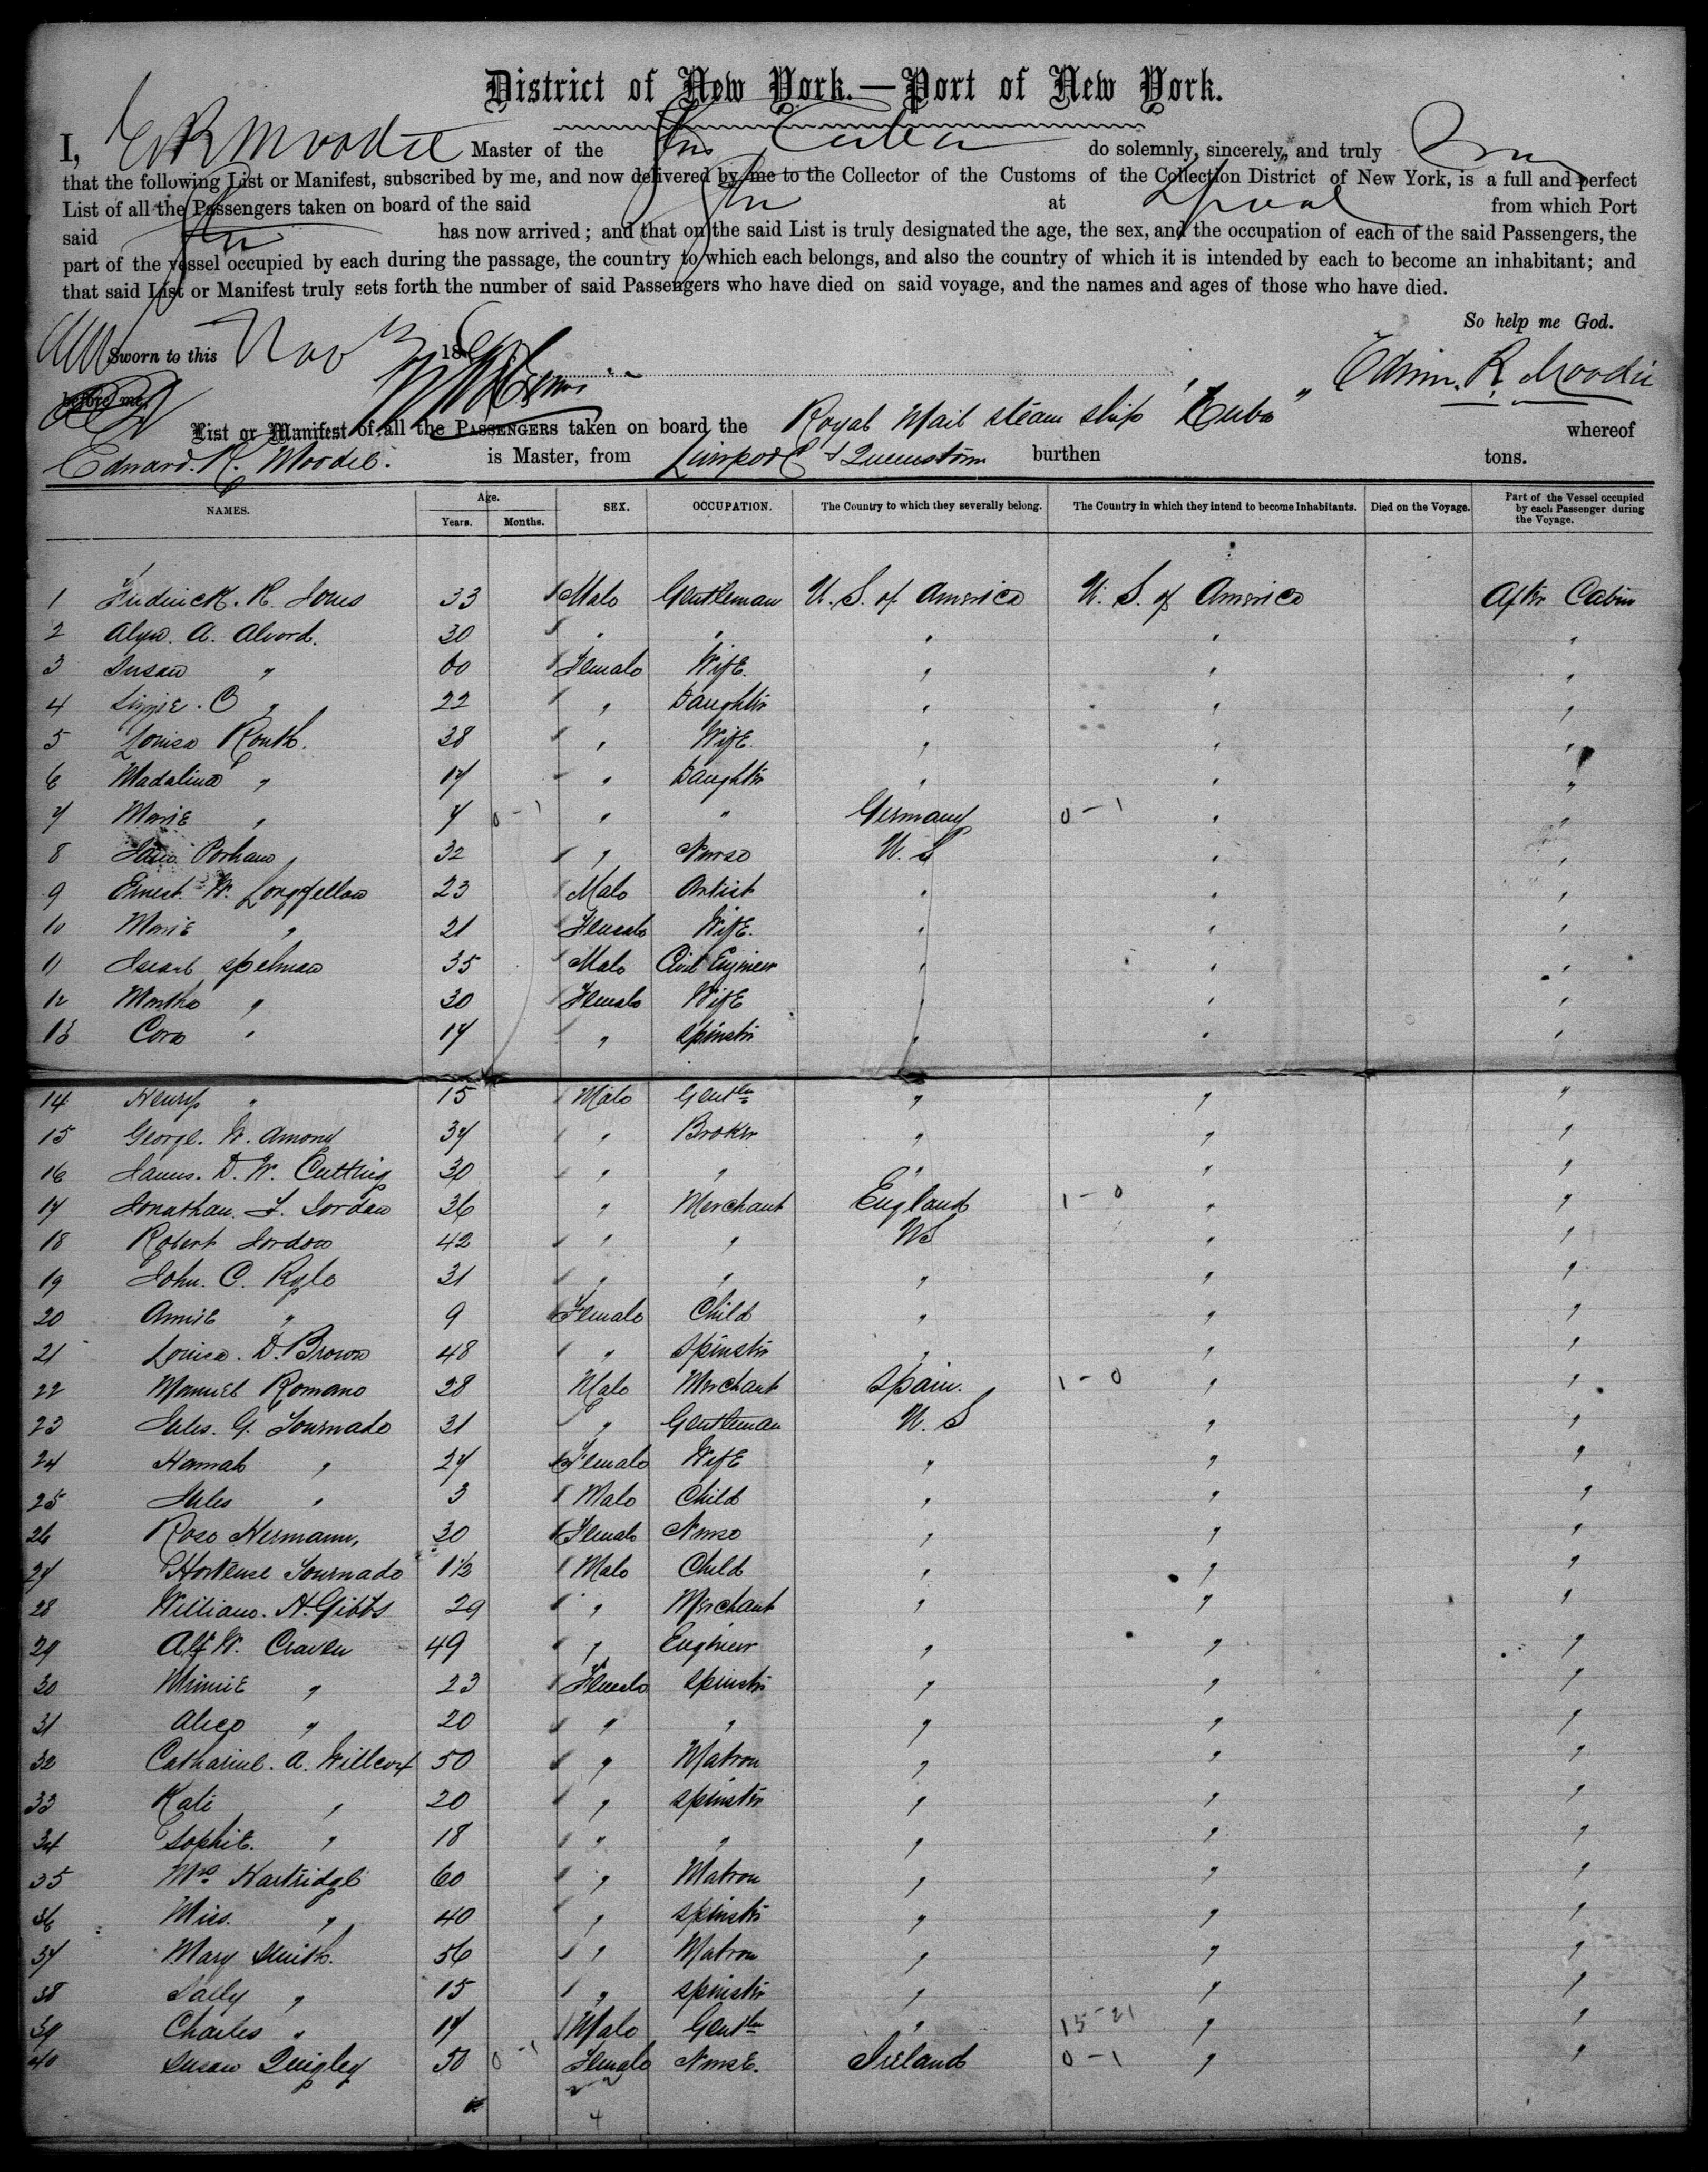 District of New York.—Port of New York.
I, E R Moodie Master of the Cuba do solemnly, sincerely, and truly
that the following List or Manifest, subscribed by me, and now delivered by me to the Collector of the Customs of the Collection District of New York, is a full and perfect
List of all the Passengers taken on board of the said at Lpool from which Port
said has now arrived; and that on the said List is truly designated the age, the sex, and the occupation of each of the said Passengers, the
part of the vessel occupied by each during the passage, the country to which each belongs, and also the country of which it is intended by each to become an inhabitant; and
that said List or Manifest truly sets forth the number of said Passengers who have died on said voyage, and the names and ages of those who have died.
So help me God.
Sworn to this Nov 186
Edwin. R. Moodie
before me,
List or Manifest of all the PASSENGERS taken on board the Royal Mail steam ship "Cuba" whereof
Edward. R. Moodie. is Master, from Liverpool & Queenstown burthen tons.
NAMES. Age. Years. Months. SEX. OCCUPATION. The Country to which they severally belong. The Country in which they intend to become Inhabitants. Died on the Voyage. Part of the Vessel occupied by each Passenger during the Voyage.
1 Frederick. R. Jones 33 Male Gentleman U. S. of America U. S. of America After Cabin
2 A. Alvord. 30 " " " " "
3 Susan " 60 Female Wife. " " "
4 Lizzie. C " 22 " Daughter " " "
5 Louisa Routh. 38 " Wife. " " "
6 Madalina " 17 " Daughter " " "
7 Marie " 7 0-1 " " Germany 0-1 " "
8 32 " Nurse U. S " "
9 Ernest. W. Longfellow 23 Male Artist " " "
10 Marie " 21 Female Wife. " " "
11 Spelman 35 Male Civil Engineer " " "
12 Martha " 30 Female Wife " " "
13 Cora " 17 " Spinster " " "
14 Henry " 15 Male Gentln " " "
15 George. W. Amory 37 " Broker " " "
16 James. D. W. Cutting 30 " " " " "
17 Jonathan. J. Jordan 36 " Merchant England 1-0 " "
18 Robert Jordan 42 " " US " "
19 John. C. Ryle 31 " " " " "
20 Annie " 9 Female Child " " "
21 Louisa. D. Brown 48 " Spinster " " "
22 Manuel Romano 28 Male Merchant Spain. 1-0 " "
23 Jules. G. Tournade 31 " Gentleman U. S " "
24 Hannah " 27 Female Wife " " "
25 Jules " 3 Male Child " " "
26 Rose Hermann, 30 Female Nurse " " "
27 Hortense Tournade 1½ Male Child " " "
28 William. H. Gibbs 29 " Merchant " " "
29 Alf W. Craven 49 " Engineer " " "
30 Minnie " 23 Female Spinster " " "
31 Alice " 20 " " " " "
32 Catharine. A. Willcox 50 " Matron " " "
33 Kate " 20 " Spinster " " "
34 Sophie. " 18 " " " " "
35 Mrs Hartridge 60 " Matron " " "
36 Miss. " 40 " Spinster " " "
37 Mary Smith. 56 " Matron " " "
38 Sally " 15 " Spinster " " "
39 Charles " 17 Male Gentln " 15-21 " "
40 Susan Quigley 50 0-1 Female Nurse. Ireland 0-1 " "
4